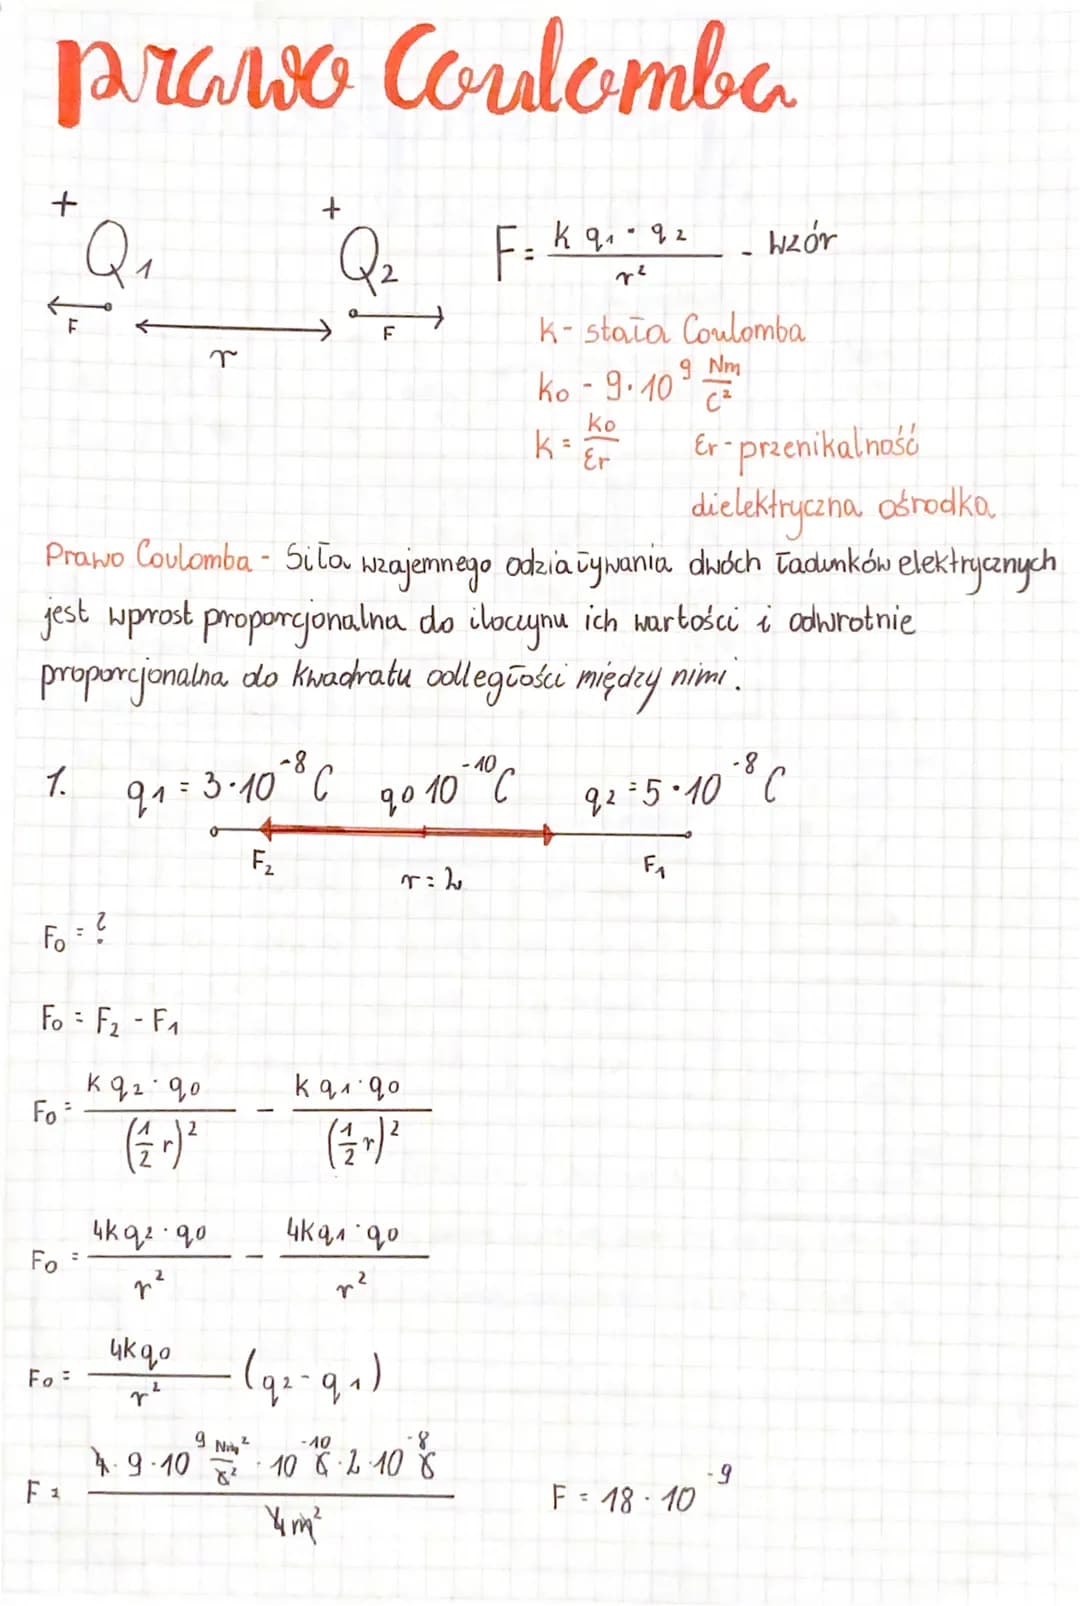 prawo Coulomba
+ Q1 + Q2 F = k q1 · q2 / r² - wzór
F r F
k - stała Coulomba
k0 - 9·10⁹ Nm/C²
k = k0/εr εr - przenikalność
dielektryczna ośrodka
Prawo Coulomba - Siła wzajemnego odziaływania dwóch ładunków elektrycznych
jest wprost proporcjonalna do iloczynu ich wartości i odwrotnie
proporcjonalna do kwadratu odległości między nimi.
1. q1 = 3·10⁻⁸ C q0 10⁻¹⁰ C q2 = 5·10⁻⁸ C
F2 r = 2 F1
F0 = ?
F0 = F2 - F1
F0 = k q2 · q0 / (1/2 r)² - k q1 · q0 / (1/2 r)²
F0 = 4k q2 · q0 / r² - 4k q1 · q0 / r²
F0 = 4k q0 / r² (q2 - q1)
F = 4 · 9·10⁹ Nm²/C² · 10⁻¹⁰ C · 2·10⁻⁸ C / 4m² F = 18 · 10⁻⁹